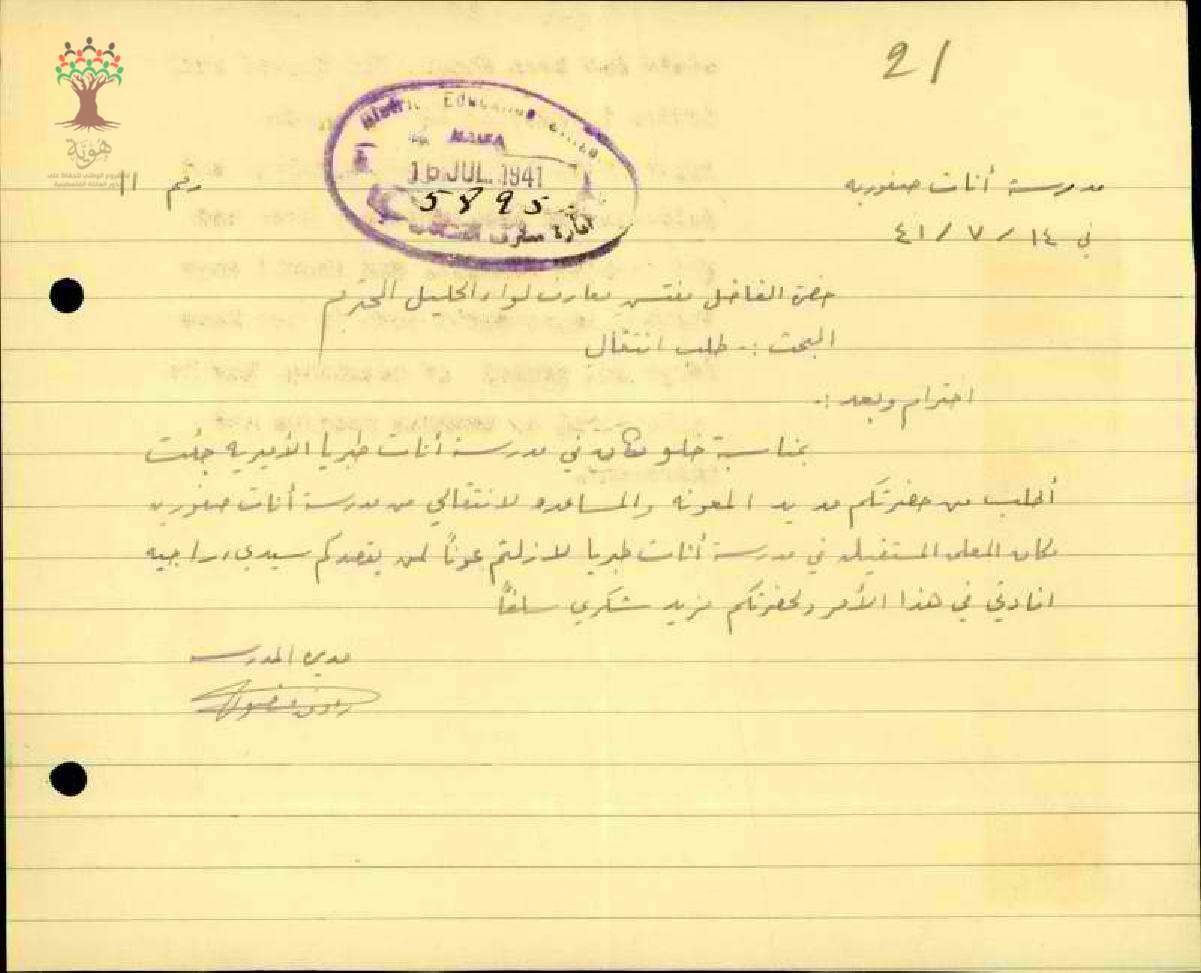 21
هوية
District Education Office
16 JUL. 1941
5895
مدرسة أناث صفوريه
رقم ١١
في ١٤ / ٧ / ٤١
حضرة الفاضل مفتش معارف لواء الجليل المحترم
البحث :- طلب انتقال
احترام وبعد :-
بمناسبة خلو مكان في مدرسة أناث طبريا الأميريه جئت
أطلب من حضرتكم مد يد المعونه والمساعده لانتقالي من مدرسة أناث صفوريه
مكان المعلمه المستقيله في مدرسة أناث طبريا لازلتم عوناً لمن يقصدكم سيدي، راجيه
افادتي في هذا الأمر ولحضرتكم مزيد شكري سلفاً
مديرة المدرسه